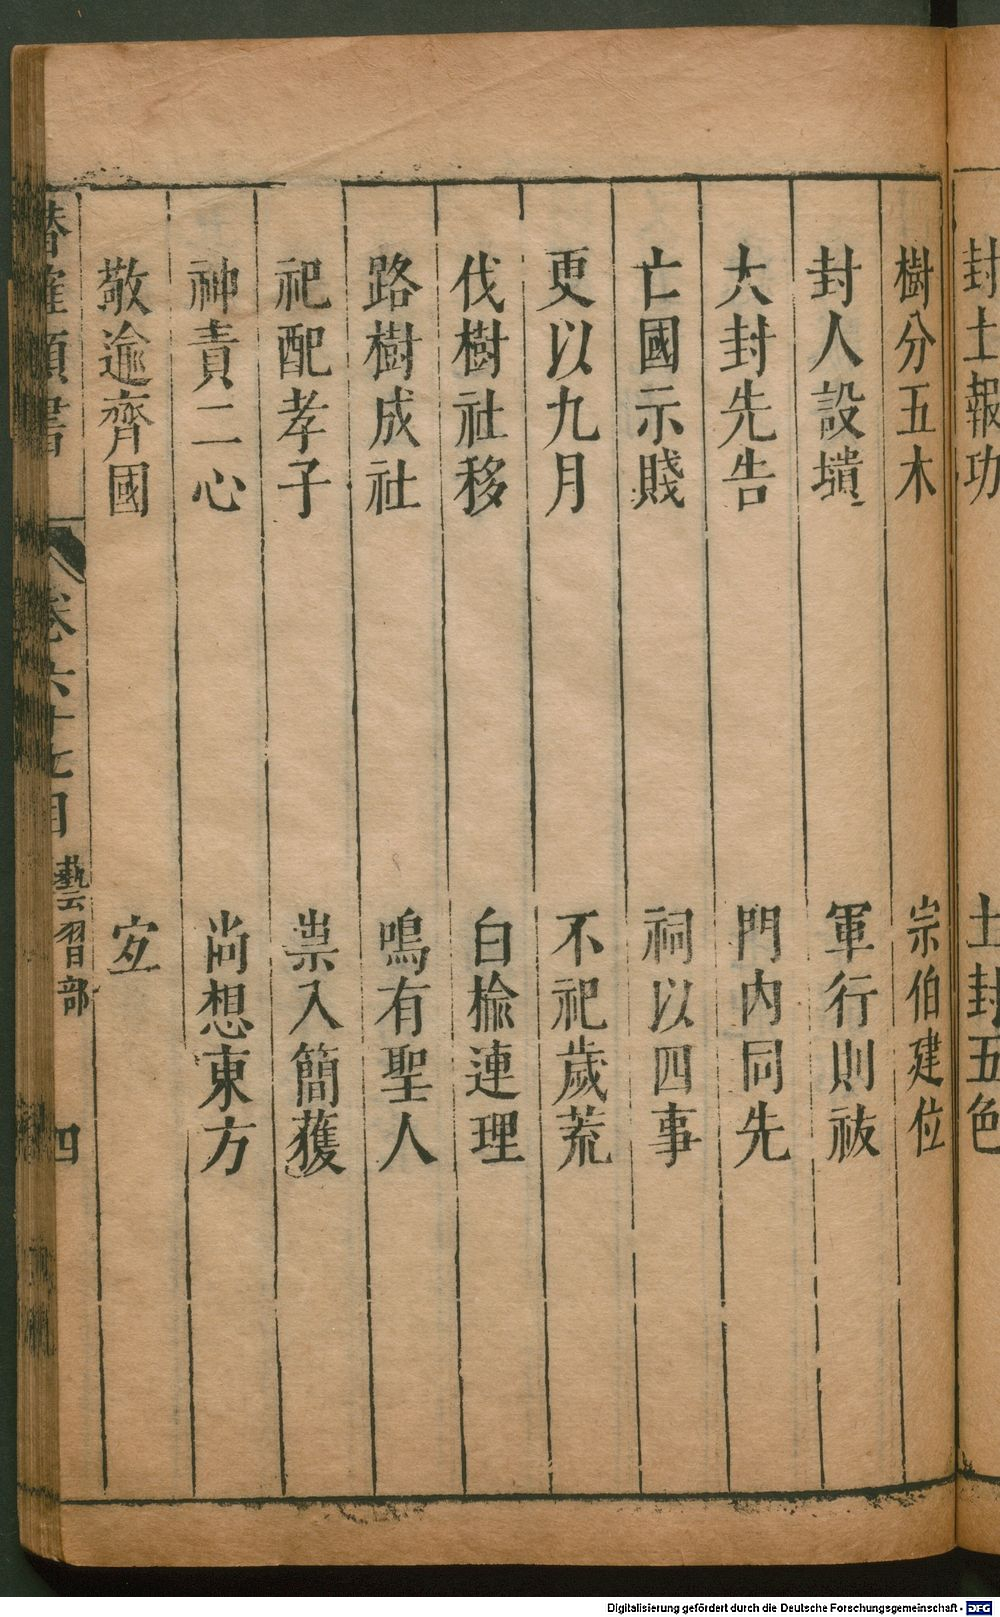 封土報功 土封五色
樹分五木 宗伯建位
封人設壝 軍行則祓
大封先告 門內同先
亡國示賤 祠以四事
更以九月 不祀歲荒
伐樹社移 白榆連理
路樹成社 鳴有聖人
祀配孝子 祟入簡獲
神責二心 尚想東方
敬逾齊國
卷六十七目 藝習部 四
Digitalisierung gefördert durch die Deutsche Forschungsgemeinschaft - DFG